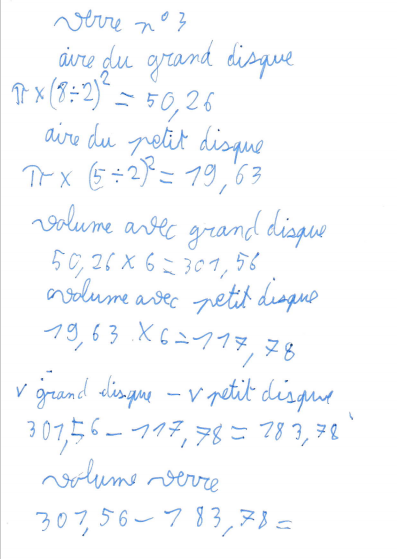 verre n°3
aire du grand disque
π × (8÷2)² = 50,26
aire du petit disque
π × (5÷2)² = 19,63
volume avec grand disque
50,26 × 6 = 301,56
volume avec petit disque
19,63 × 6 = 117,78
v grand disque - v petit disque
301,56 - 117,78 = 183,78
volume verre
301,56 - 183,78 =